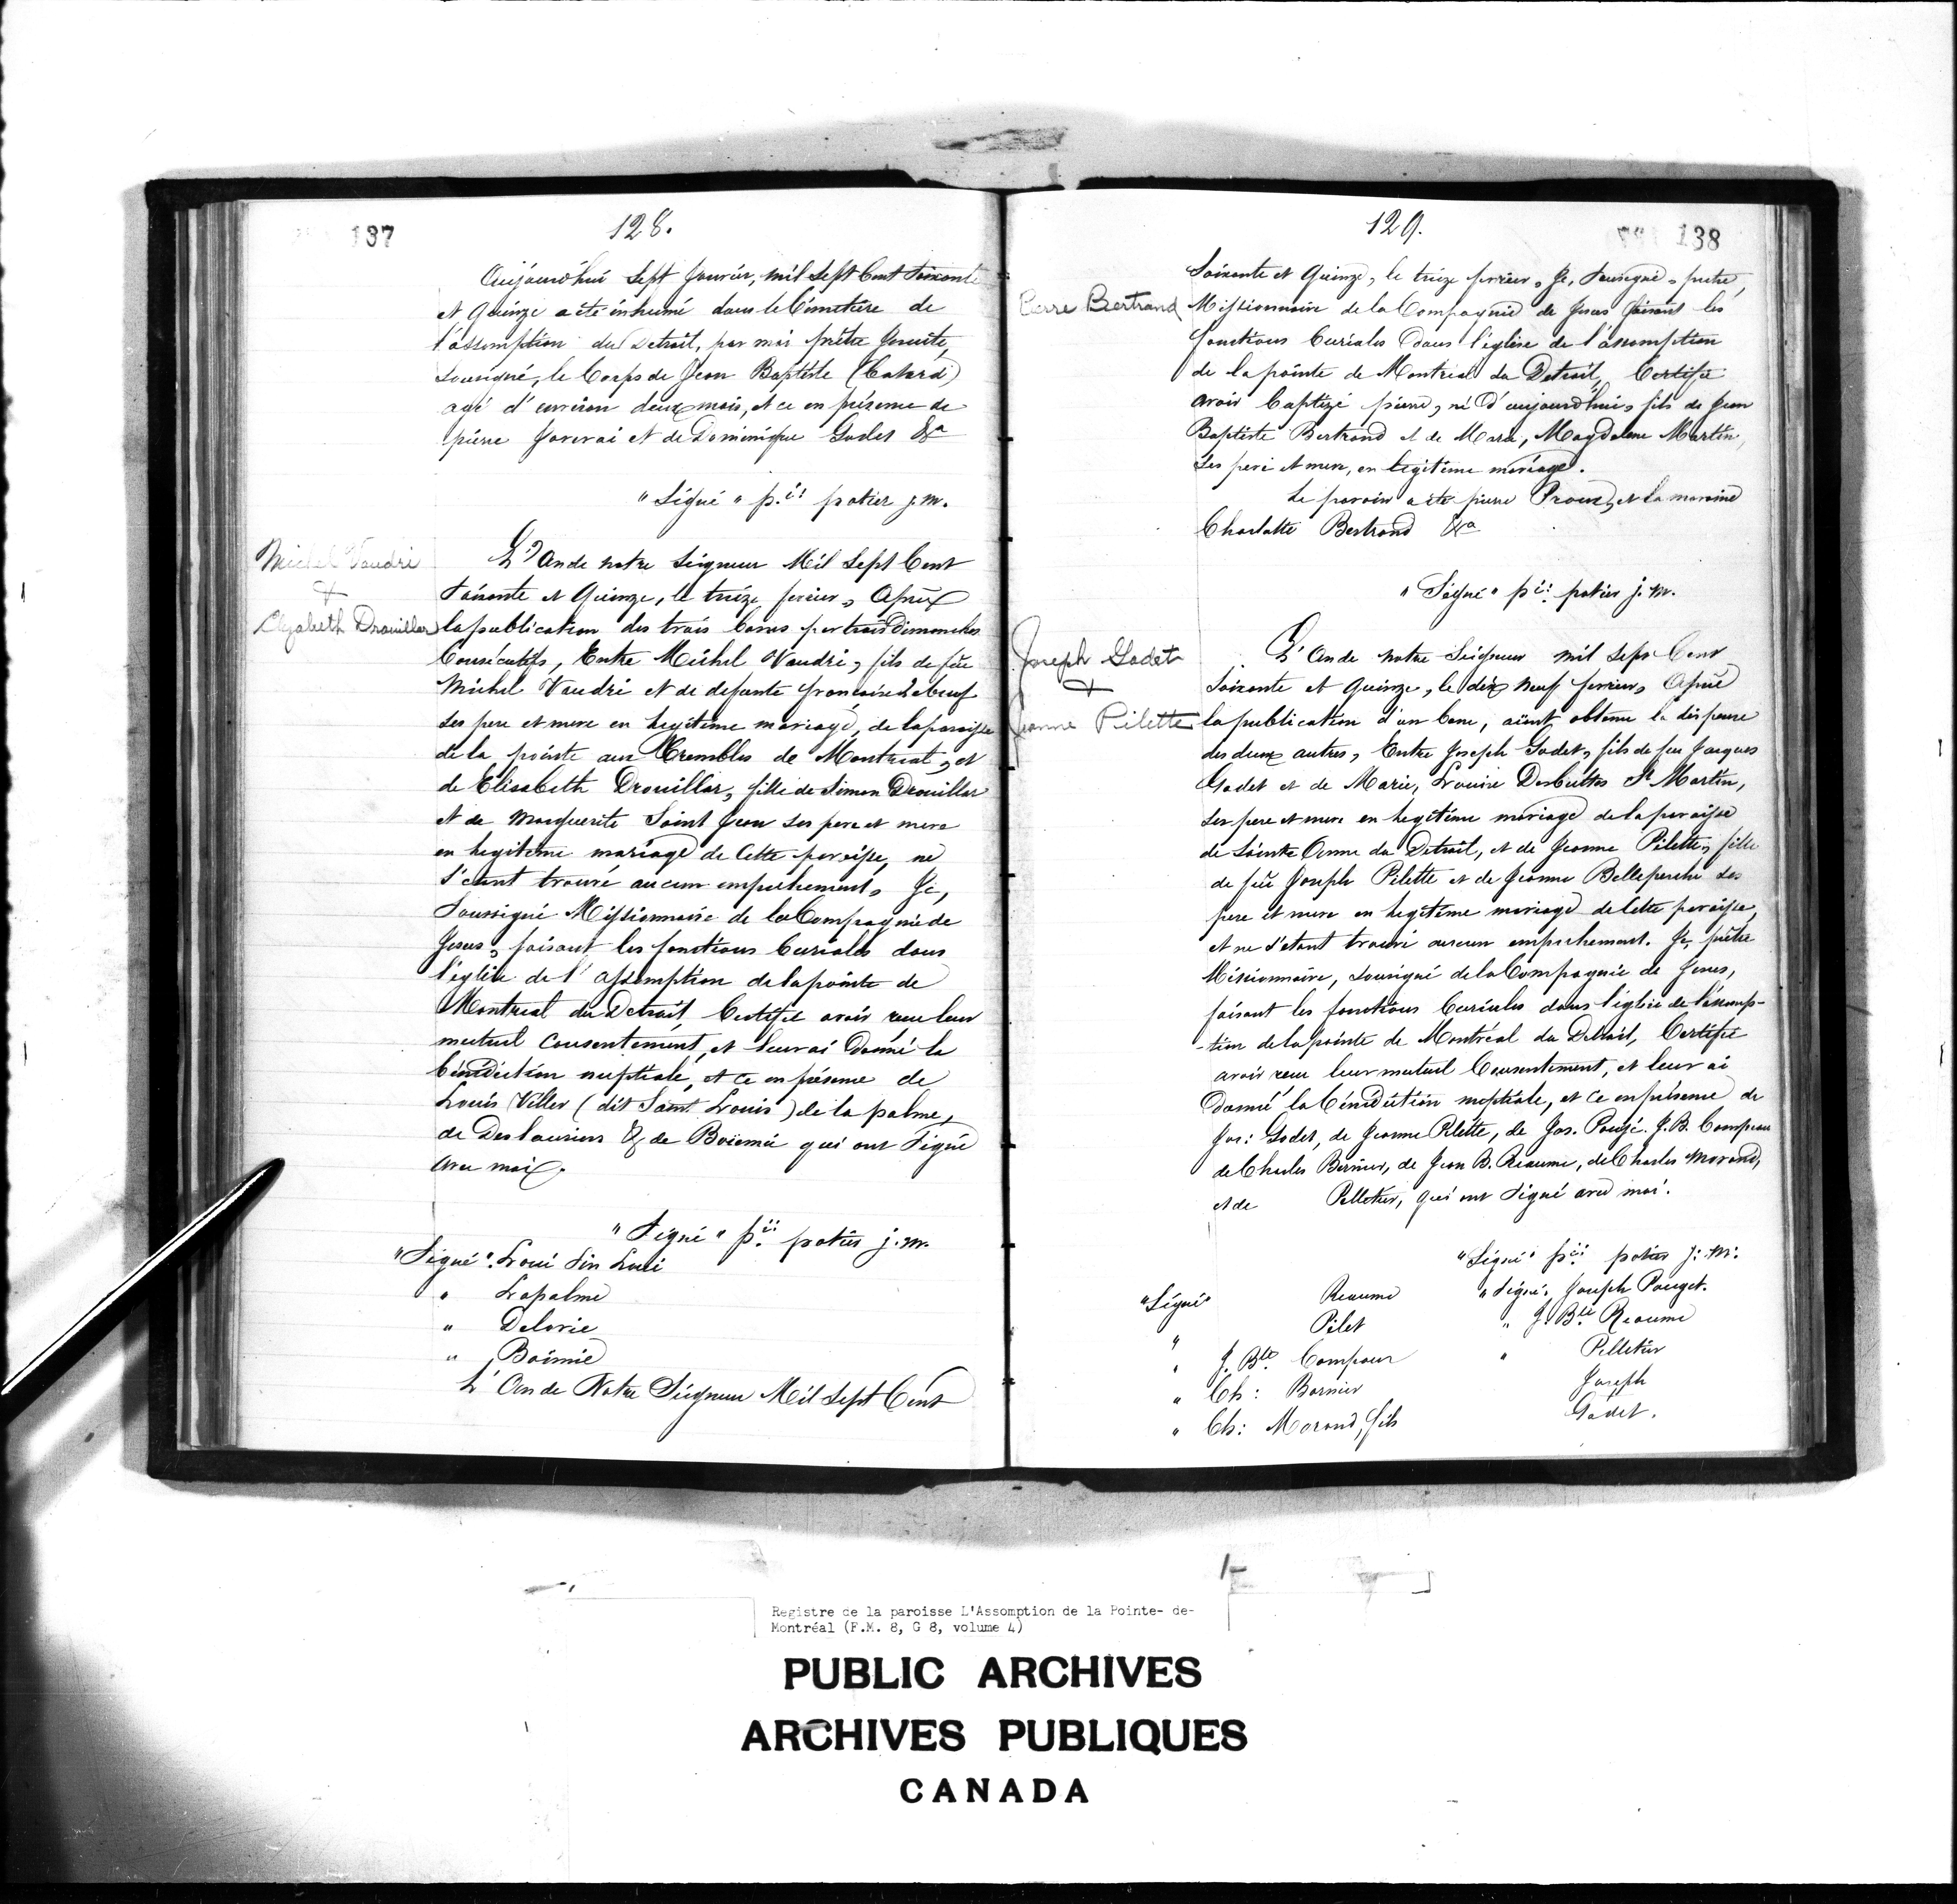 137
128.
Aujourd'hui Sept fevrier, mil Sept Cent Soixante
et Quinze a été inhumé dans le Cimetière de
l'assomption du Detroit, par moi prêtre Jesuite,
Sousigné, le Corps de Jean Baptiste (batard)
agé d'environ deux mois, et ce en présence de
pierre Jorvrai et de Dominique Godet &a
"Signé" p.ii potier j.m.
Michel Vaudri
+
Elizabeth Drouillar
L'An de notre Seigneur Mil Sept Cent
Soixante et Quinze, le treize fevrier, Après
la publication des trois bans par trois Dimanches
Consécutifs, Entre Michel Vaudri, fils de feu
Michel Vaudri et de defunte francoise Lebeuf
Ses pere et mere en legitime mariage, de la paroisse
de la pointe aux Trembles de Montreal, et
de Elisabeth Drouillar, fille de Simon Drouillar
et de Marguerite Saint Jean Ses pere et mere
en legitime mariage de Cette paroisse, ne
s'etant trouvé aucun empechement, Je,
Soussigné Missionnaire de la Compagnie de
Jesus, faisant les fonctions Curiales dans
l'église de l'assomption de la pointe de
Montreal du Detroit, Certifie avoir reçu leur
mutuel Consentement, et leur ai Donné la
bénédiction nuptiale, et ce en présence de
Louis Viller (dit Saint Louis) de la palme,
de Deslauriers & de Boiemié qui ont Signé
avec moi.
"Signé" p.ii potier j.m.
"Signé". Loui Sin Luii
" Lapalme
" Delorie
" Boimié
L'An de Notre Seigneur Mil Sept Cent
129.
138
Soixante et Quinze, le treize fevrier, Je, Sousigné, prêtre,
Pierre Bertrand
Missionnaire de la Compagnie de Jesus faisant les
fonctions Curiales dans l'église de l'assomption
de la pointe de Montreal du Detroit, Certifie
avoir baptizé pierre, né d'aujourd'hui, fils de Jean
Baptiste Bertrand et de Marie, Magdelene Martin,
Ses pere et mere, en legitime mariage.
Le parain a été pierre Proux, et la maraine
Charlotte Bertrand &a
"Signé" p.ii potier j.m.
Joseph Godet
+
Jeanne Pilette
L'An de notre Seigneur mil Sept Cent
Soixante et Quinze, le dix neuf fevrier, Après
la publication d'un banc, aiant obtenu la dispense
des deux autres, Entre Joseph Godet, fils de feu Jacques
Godet et de Marie, Louise Desbuttes St Martin,
Ses pere et mere en legitime mariage de la paroisse
de Sainte Anne du Detroit, et de Jeanne Pilette, fille
de feu Joseph Pilette et de Jeanne Belleperche Ses
pere et mere en legitime mariage de Cette paroisse,
et ne s'etant trouvé aucun empechement. Je, prêtre
Missionnaire, sousigné de la Compagnie de Jesus,
faisant les fonctions Curiales dans l'église de l'assomp-
-tion de la pointe de Montréal du Detroit, Certifie
avoir reçu leur mutuel Consentement, et leur ai
Donné la bénédiction nuptiale, et ce en présence de
Jos: Godet, de Jeanne Pilette, de Jos. Poujé. J.B. Compeau
de Charles Bernier, de Jean B. Reaume, de Charles Morand,
et de Pelletier, qui ont Signé avec moi.
"Signé" p.ii potier j.m.
"Signé" Reaume "Signé. Joseph Pouget.
" Pilet " J. Bte Reaume
" J. Bte Compeau " Pelletier
" Ch: Bernier Joseph
" Ch: Morand, fils Godet.
Registre de la paroisse L'Assomption de la Pointe- de-
Montréal (F.M. 8, G 8, volume 4)
PUBLIC ARCHIVES
ARCHIVES PUBLIQUES
CANADA